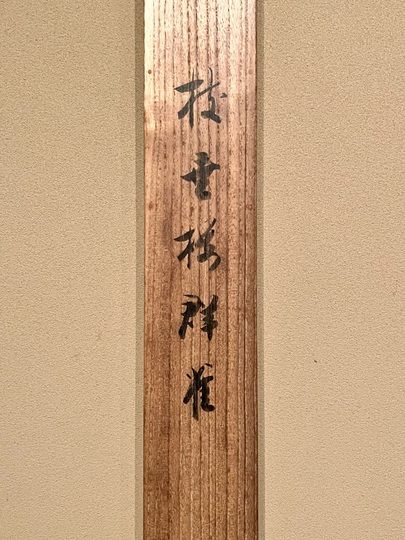 枝雪棲群雀